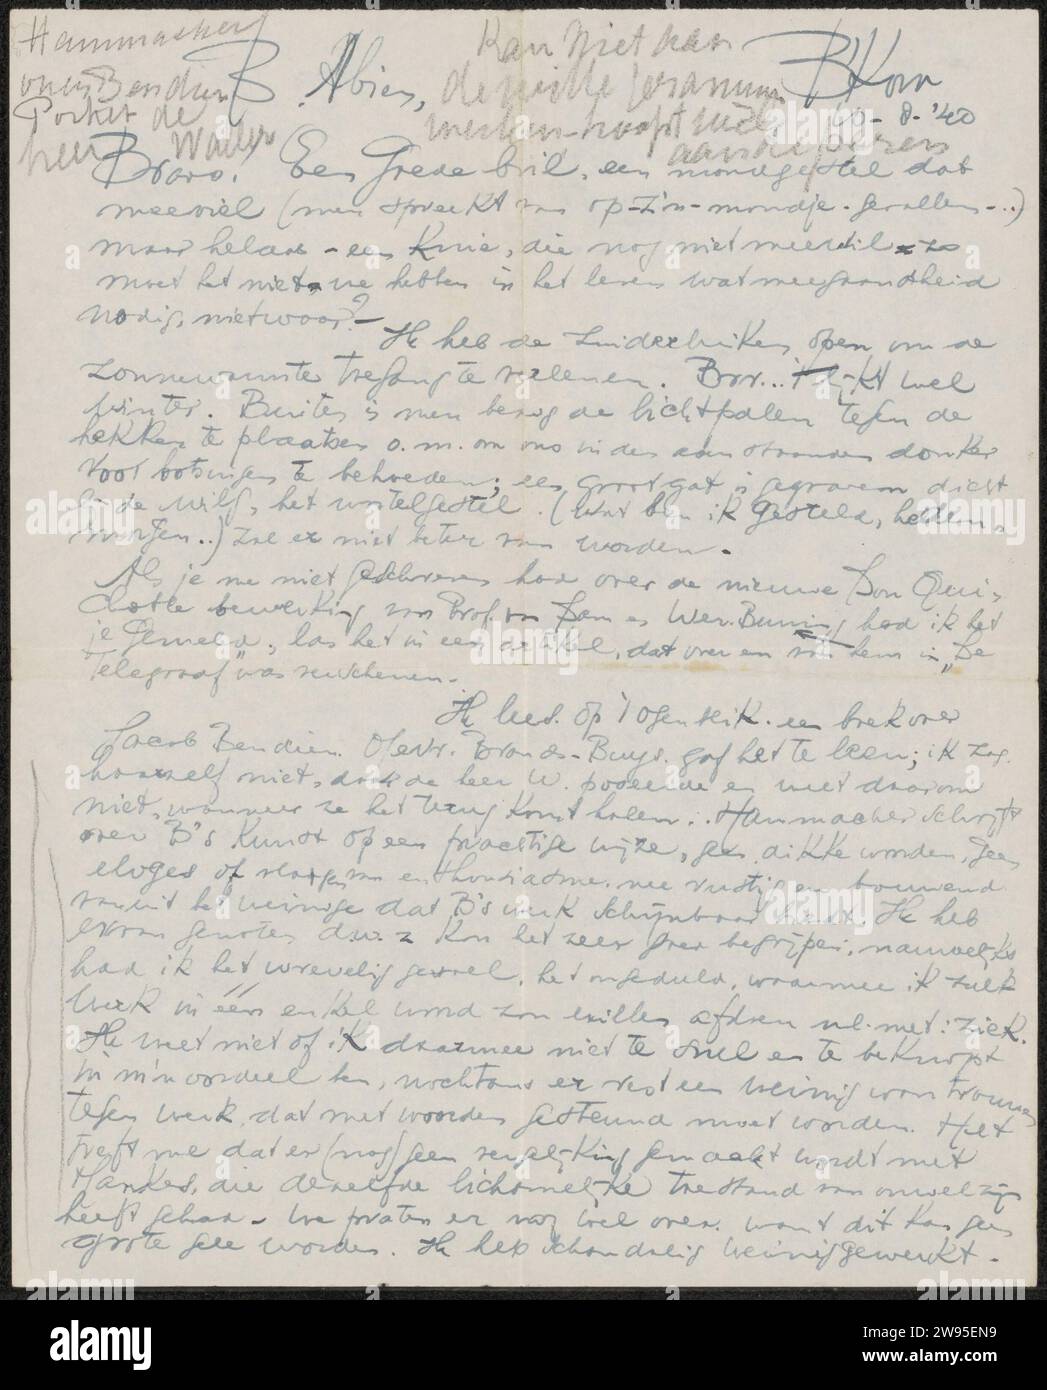 Hammacher
over Bendien
Portret de
heer Walter
Kan niet naar
de
B. Abien,
BKorn
10-8-'40
Bravo! Een Goede bril, een mondgestel dat
meeviel (men spreekt van op-zijn-mondje-gevallen-..)
maar helaas - een Knie, die nog niet meewil - zo
moet het niet, we hebben in het leven wat meegaandheid
nodig, nietwaar? -
Ik heb de Zuiderluiken open om de
zonnewarmte toegang te verlenen. Brr... 't lijkt wel
winter. Buiten is men bezig de lichtpalen tegen de
hekken te plaatsen o.m. om ons in den aanstaanden donker
voor botsingen te behoeden; een groot gat is gegraven dicht
bij de wilg, het wortelgestel. (Wat ben ik gesteld, heden-
morgen..) zal er niet beter van worden.
Als je me niet geschreven had over de nieuwe Don Qui-
chotte bewerking van Prof. van Dam en Wer. Buning had ik het
je gemeld, las het in een artikel, dat over en van hem in "De
Telegraaf" was verschenen.
Ik lees op 't ogenblik een boek over
Jacob Bendien. Mevr. Brands-Buys gaf het te leen; ik zag
haarzelf niet, daar de heer W. poseerde en weet daarom
niet, wanneer ze het terug komt halen. Hammacher schrijft
over B's Kunst op een prachtige wijze, geen dikke woorden, geen
eloges of vlagen van enthousiasme. nee rustig en bouwend
vanuit het weinige dat B's werk schijnbaar biedt. Ik heb
ervan genoten d.w.z Kon het zeer goed begrijpen, namelijk
had ik het wrevelig gevoel, het ongeduld, waarmee ik zulk
werk in één enkel woord zou willen afdoen nl. met: ziek.
Ik weet niet of ik daarmee niet te snel en te beknopt
in m'n oordeel ben, nochtans er rest een weinig wantrouwen
tegen werk, dat met woorden gesteund moet worden. Het
treft me dat er (nog) geen vergelijking gemaakt wordt met
Mankes, die dezelfde lichamelijke toestand van onwelzijn
heeft gehad - We praten er nog wel over. want dit kan geen
grote gele worden. Ik heb schandelig weinig gewerkt.
alamy
Image ID: 2W95EN9
www.alamy.com